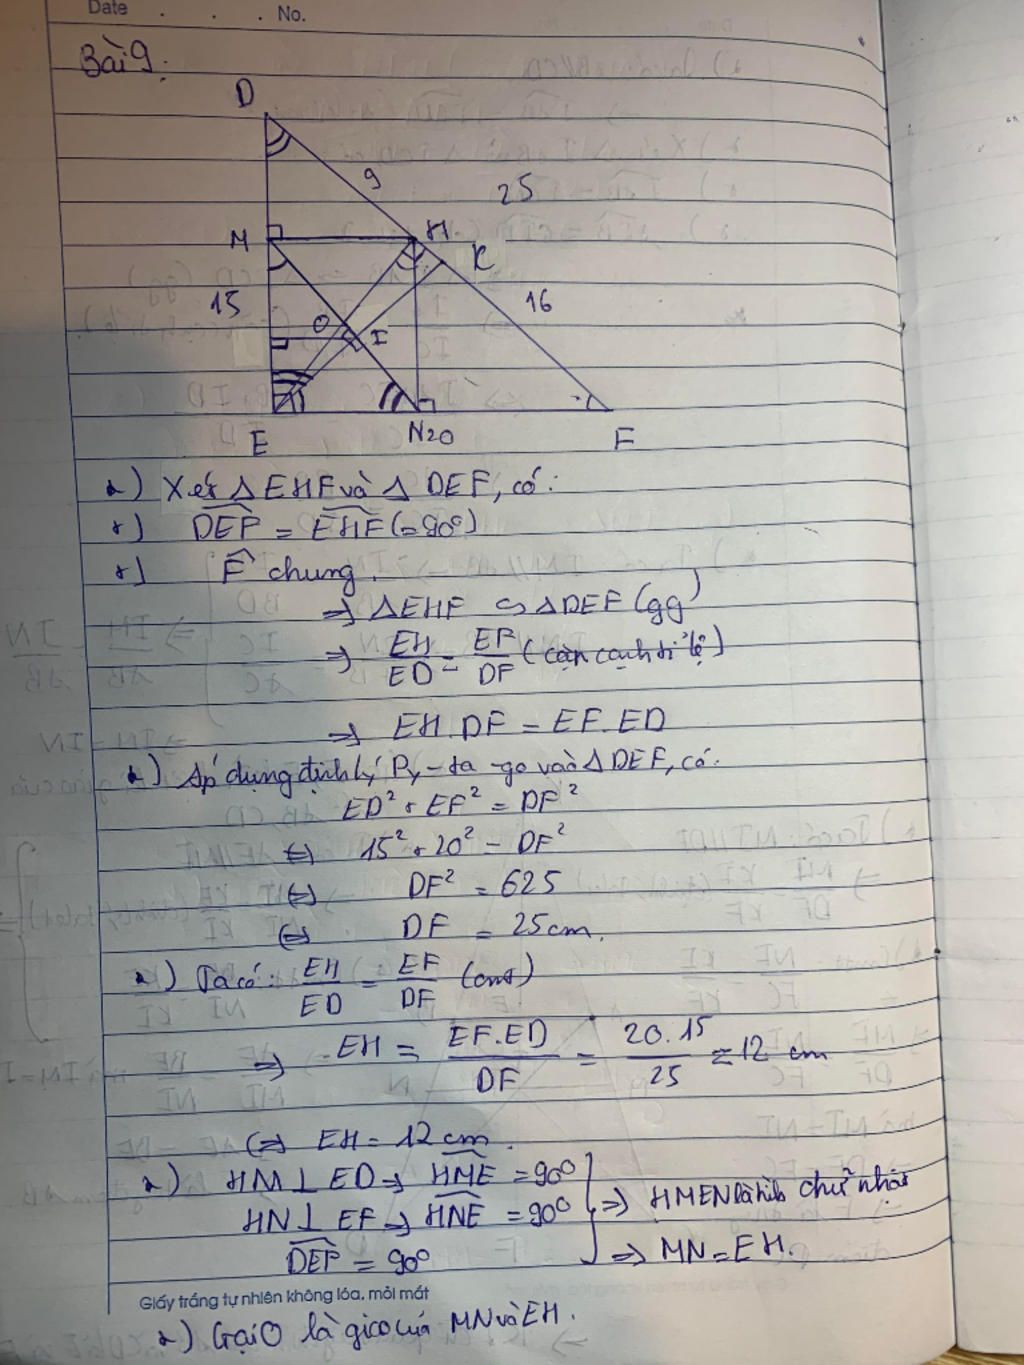 Date . . . No.
Bài 9:
D
9
25
M
H
K
15
16
O
I
E
N 20
F
a) Xét △ EHF và △ DEF, có:
+) DEF = EHF (= 90°)
+) F chung.
⇒ △EHF ∽ △DEF (gg)
⇒ EH/ED = EF/DF (cặp cạnh tỉ lệ)
⇒ EH.DF = EF.ED
*) Áp dụng định lý Py-ta-go vào △ DEF, có:
ED² + EF² = DF²
⇔ 15² + 20² = DF²
⇔ DF² = 625
⇔ DF = 25cm.
*) Ta có: EH/ED = EF/DF (cmt)
⇒ EH = EF.ED/DF = 20.15/25 = 12 cm
⇔ EH = 12 cm.
*) HM ⊥ ED ⇒ HME = 90°
HN ⊥ EF ⇒ HNE = 90° ⇒ HMEN là hình chữ nhật
DEF = 90° ⇒ MN = EH.
Giấy trắng tự nhiên không lóa, mỏi mắt
*) Gọi O là giao của MN và EH.